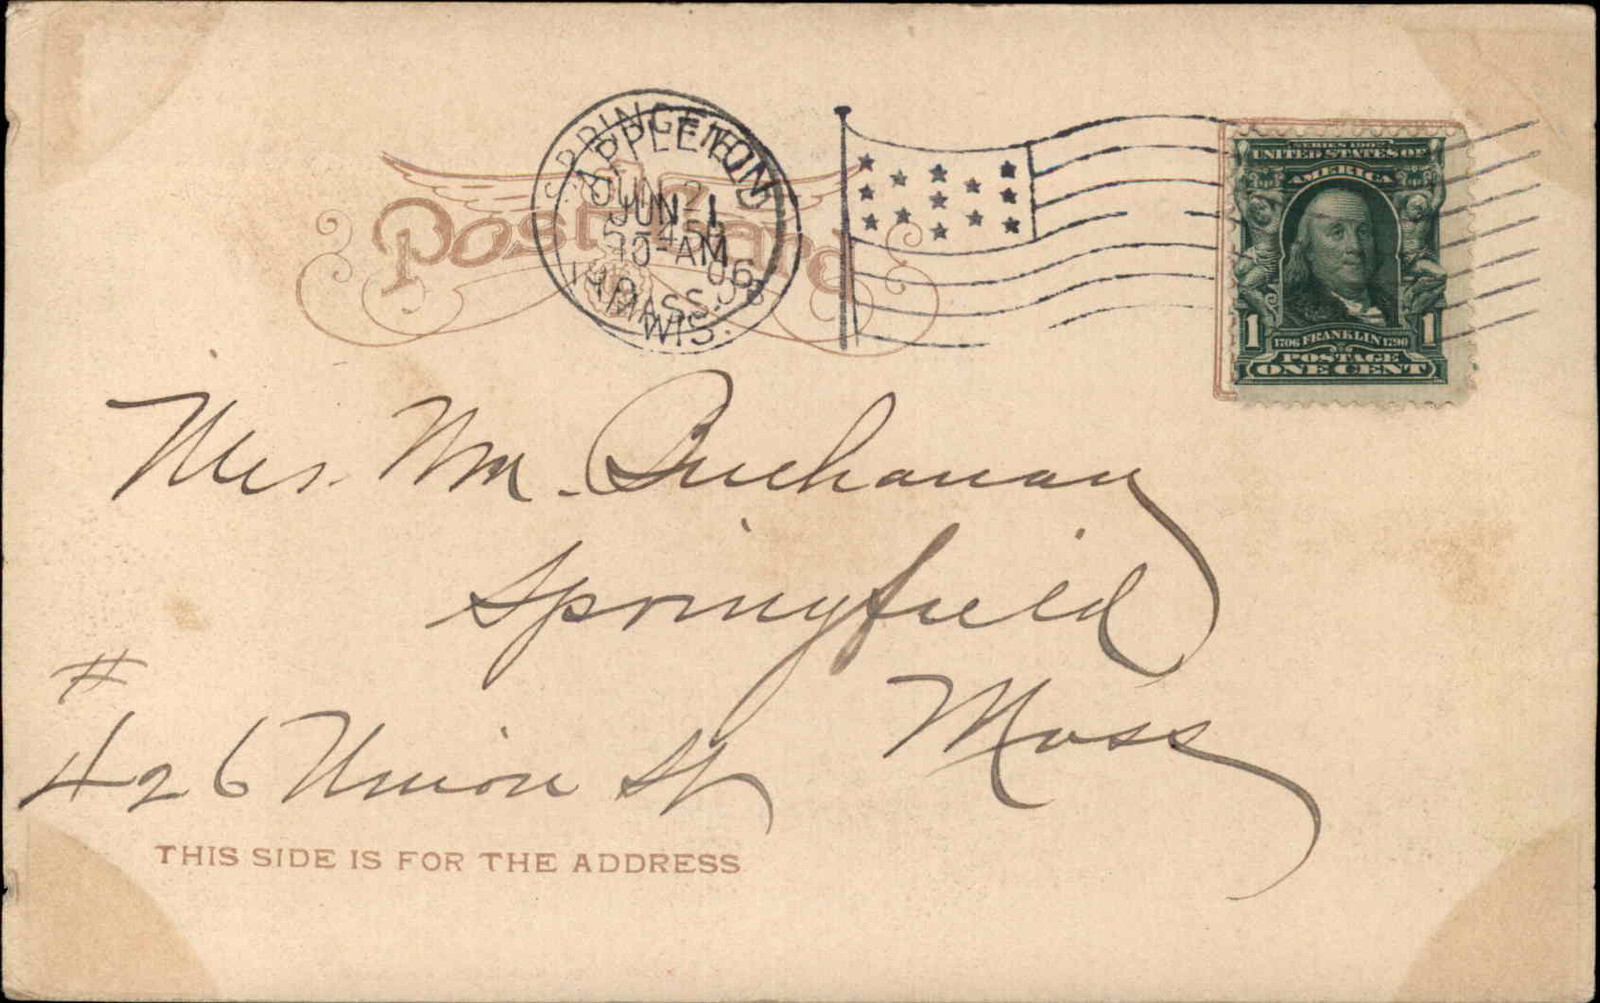 Post Card
SPRINGFIELD
APPLETON
JUN 21
WIS.
MASS.
SERIES 1902
UNITED STATES OF
AMERICA
1 1
1706 FRANKLIN 1790
POSTAGE
ONE CENT
Mrs. Wm. Buchanan
Springfield
Mass
#
426 Union St
THIS SIDE IS FOR THE ADDRESS